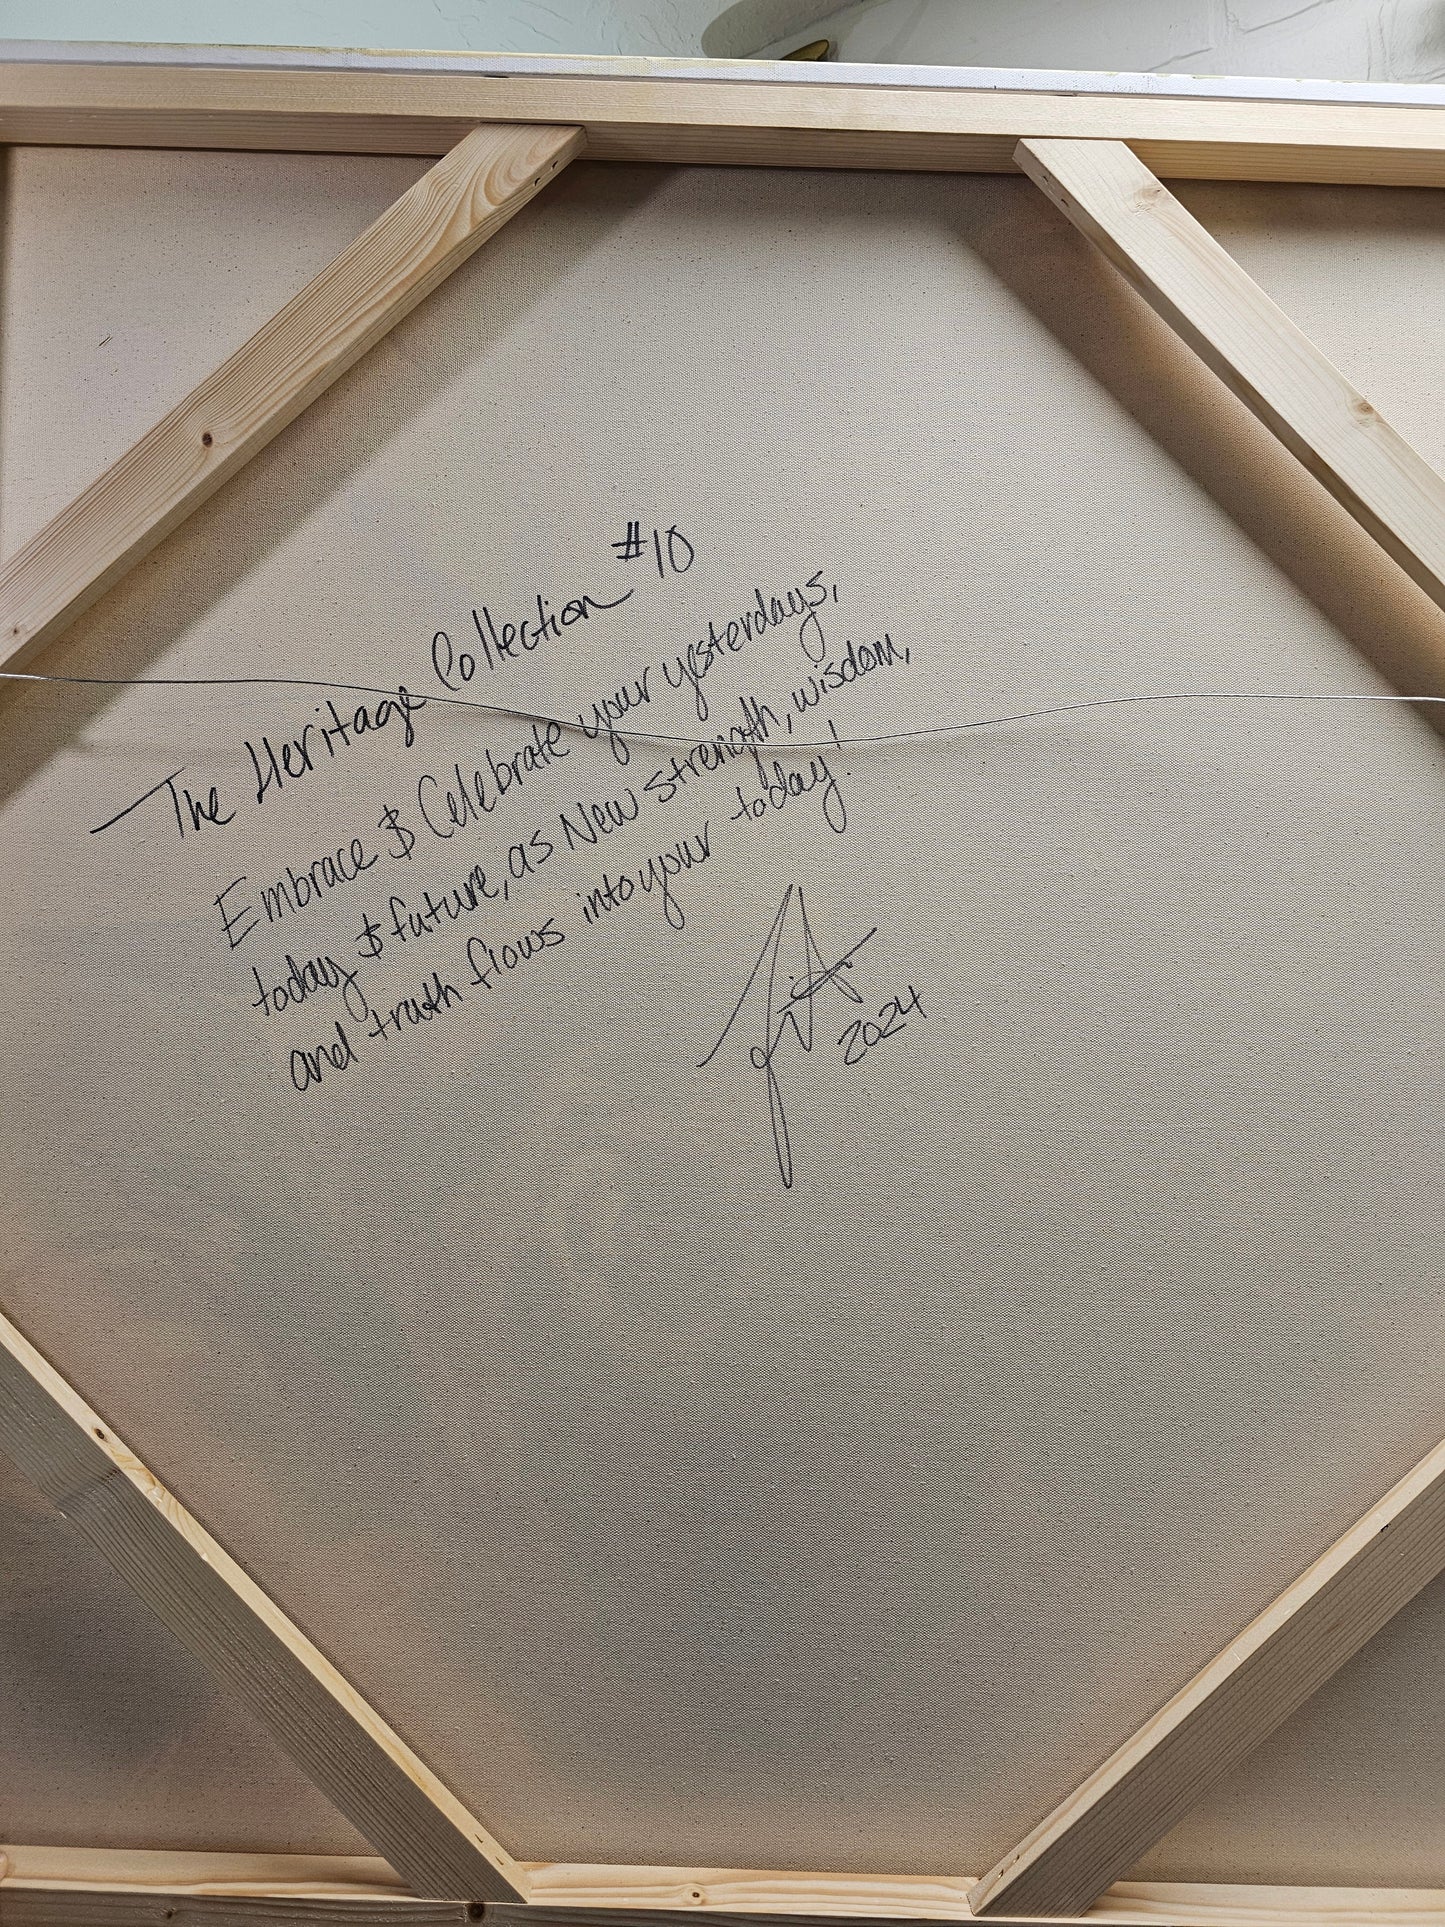 The Heritage Collection #10
Embrace & Celebrate your yesterdays,
today & future, as New strength, wisdom,
and truth flows into your today!
2024